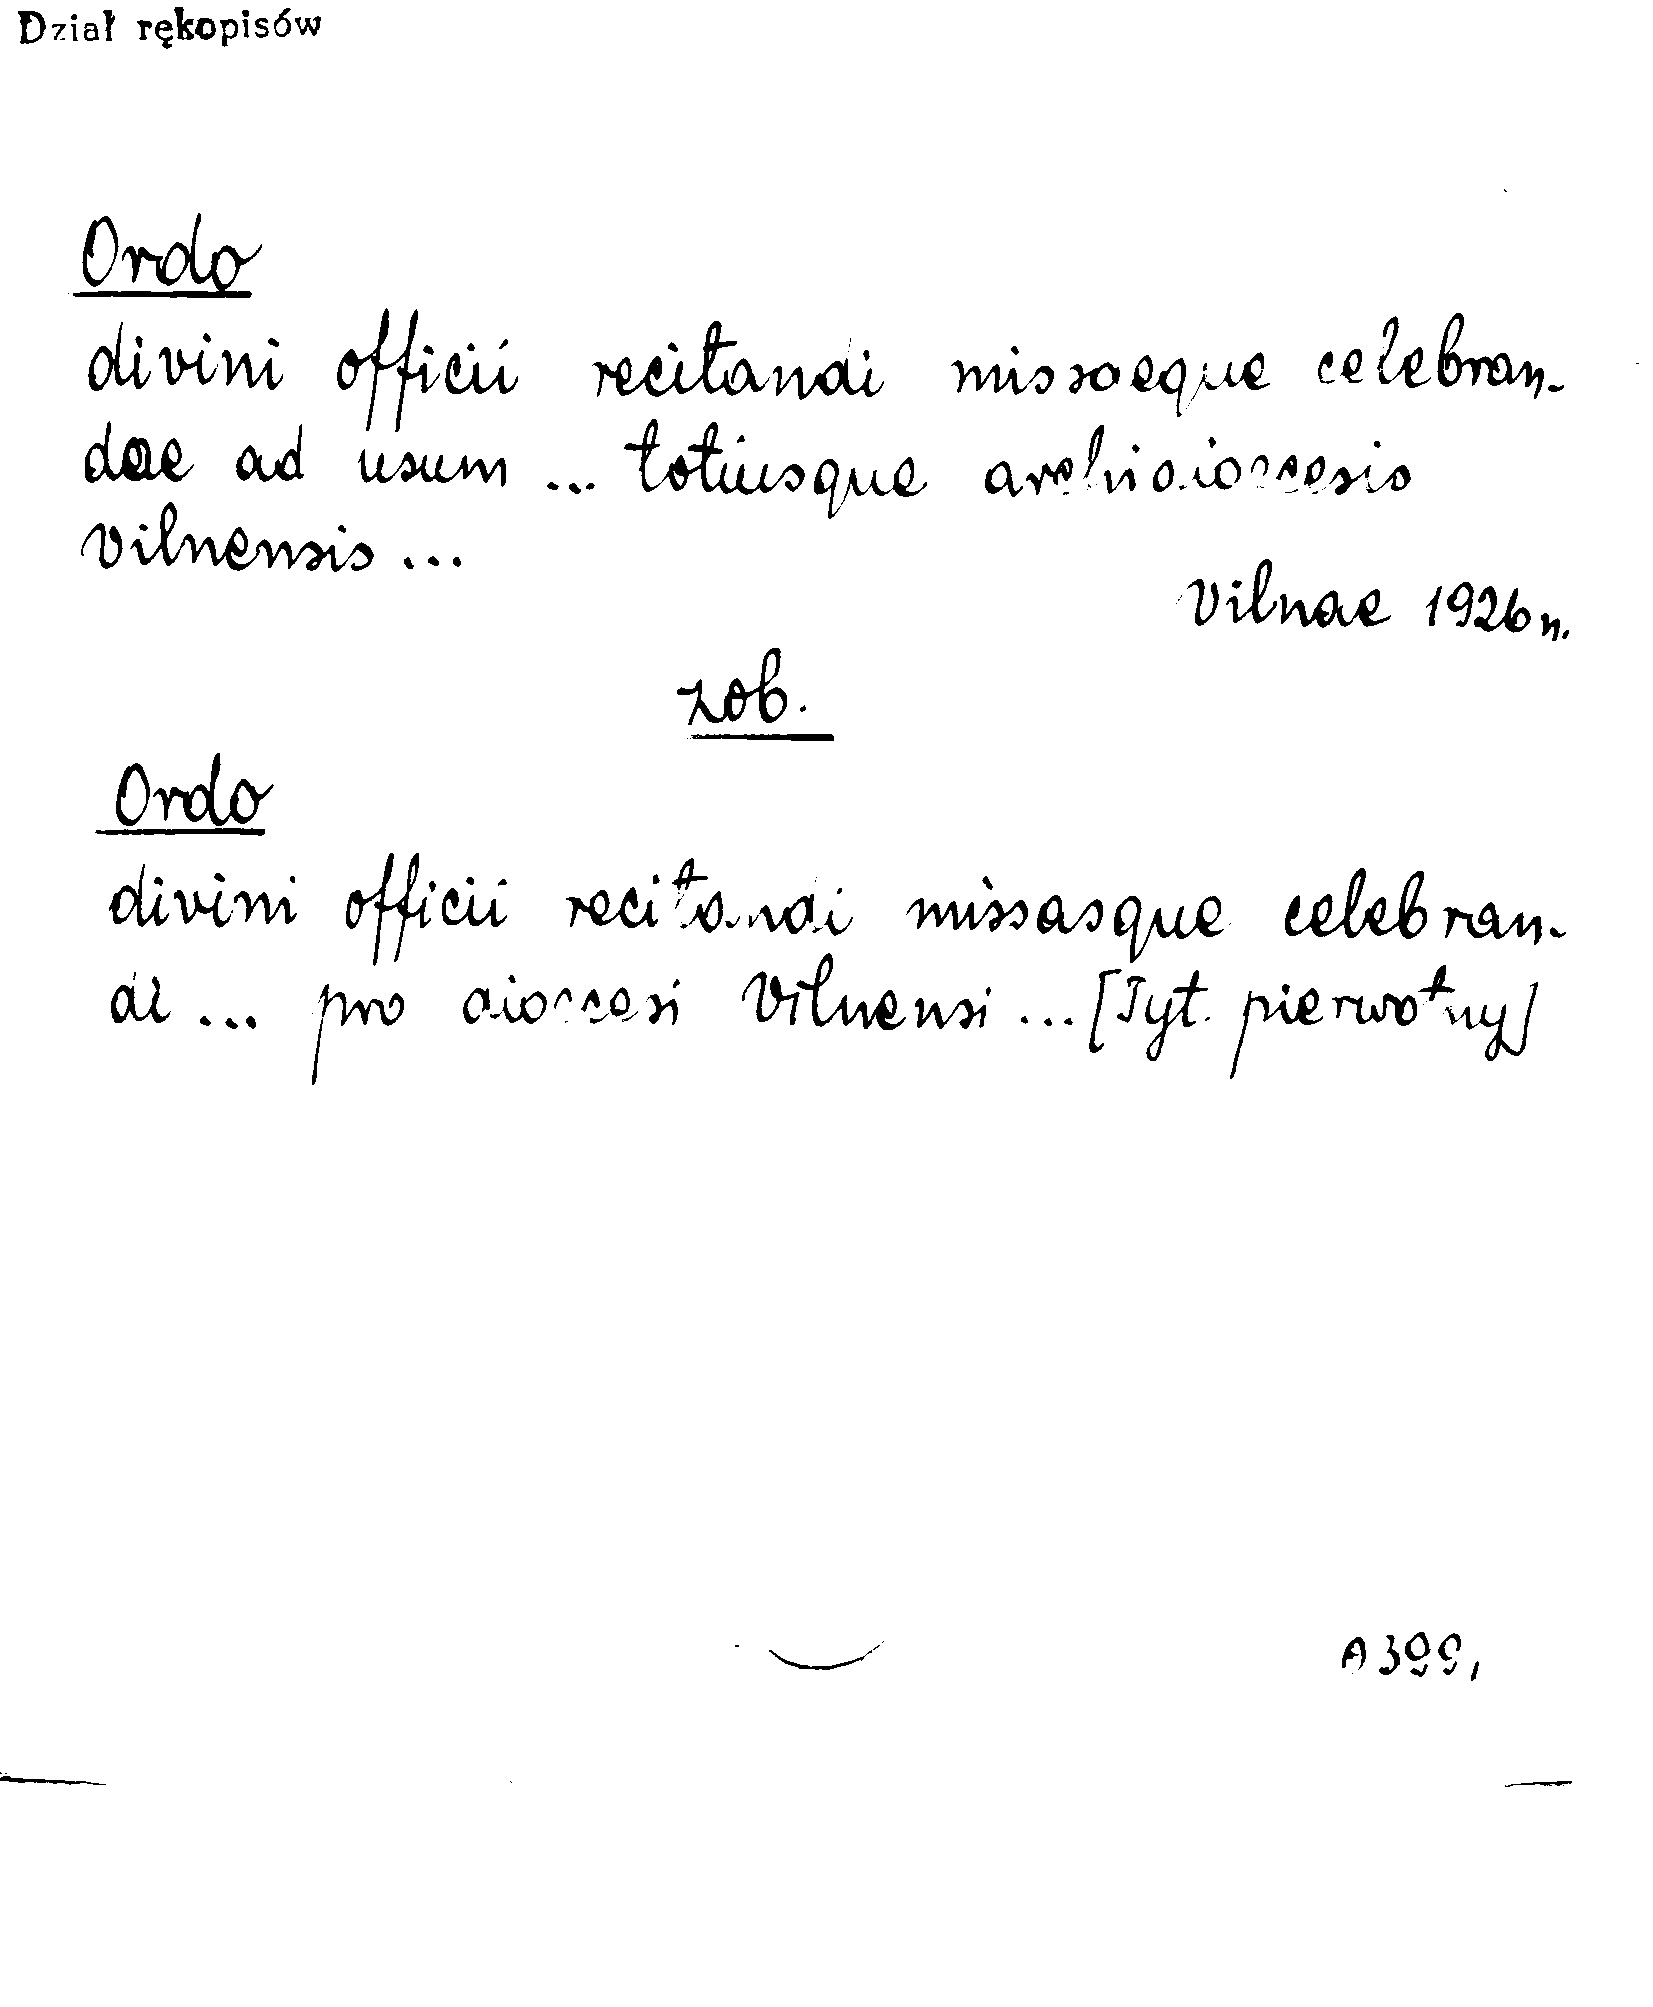 Dział rękopisów
Ordo
divini officii recitandi missaeque celebran-
dae ad usum ... totiusque archidioecesis
Vilnensis ...
Vilnae 1926 n.
zob.
Ordo
divini officii recitandi missasque celebran-
di ... pro dioecesi Vilnensi ... [Tyt. pierwotny]
A 399,